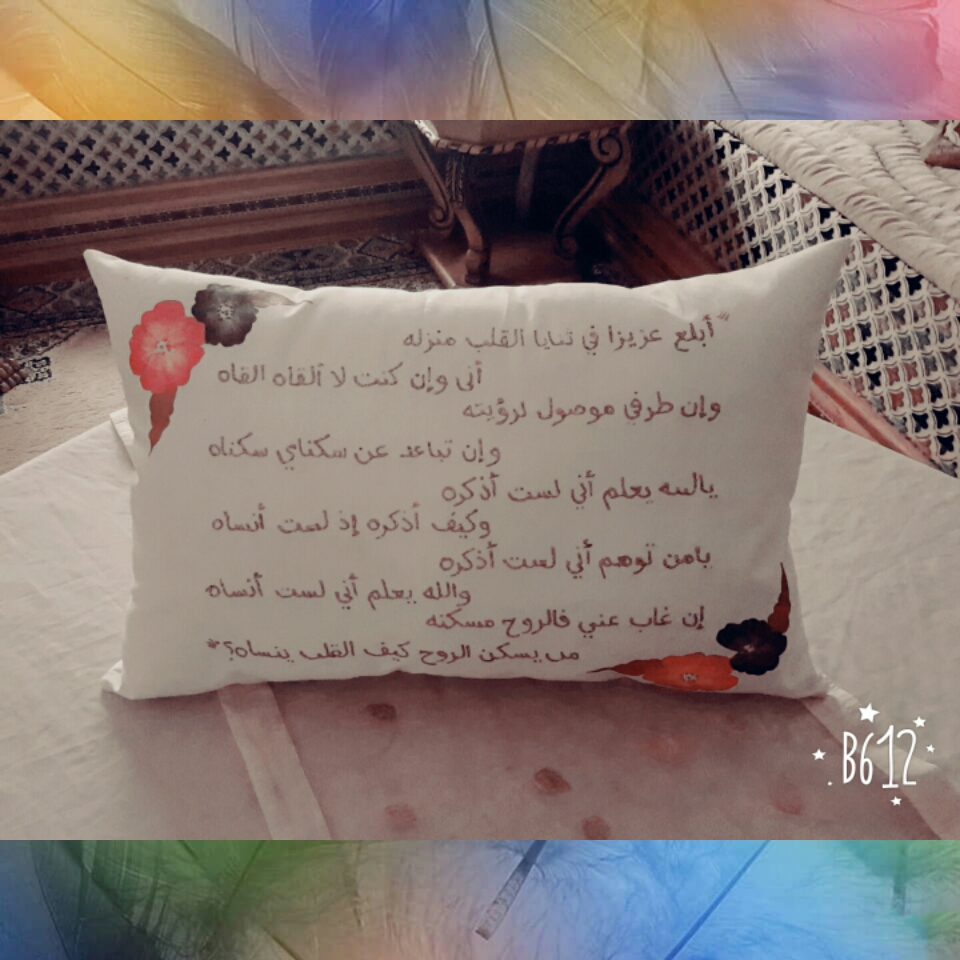 *أبلع عزيزا في تنايا القلب منزله
أنى وإن كنت لا ألقاه القاه
وإن طرفي موصول لرؤيته
وإن تباعد عن سكناي سكناه
ياليته يعلم أني لست أذكره
وكيف أذكره إذ لست أنساه
يامن توهم أني لست أذكره
والله يعلم أني لست أنساه
إن غاب عني فالروح مسكنه
من يسكن الروح كيف القلب ينساه؟*
B612